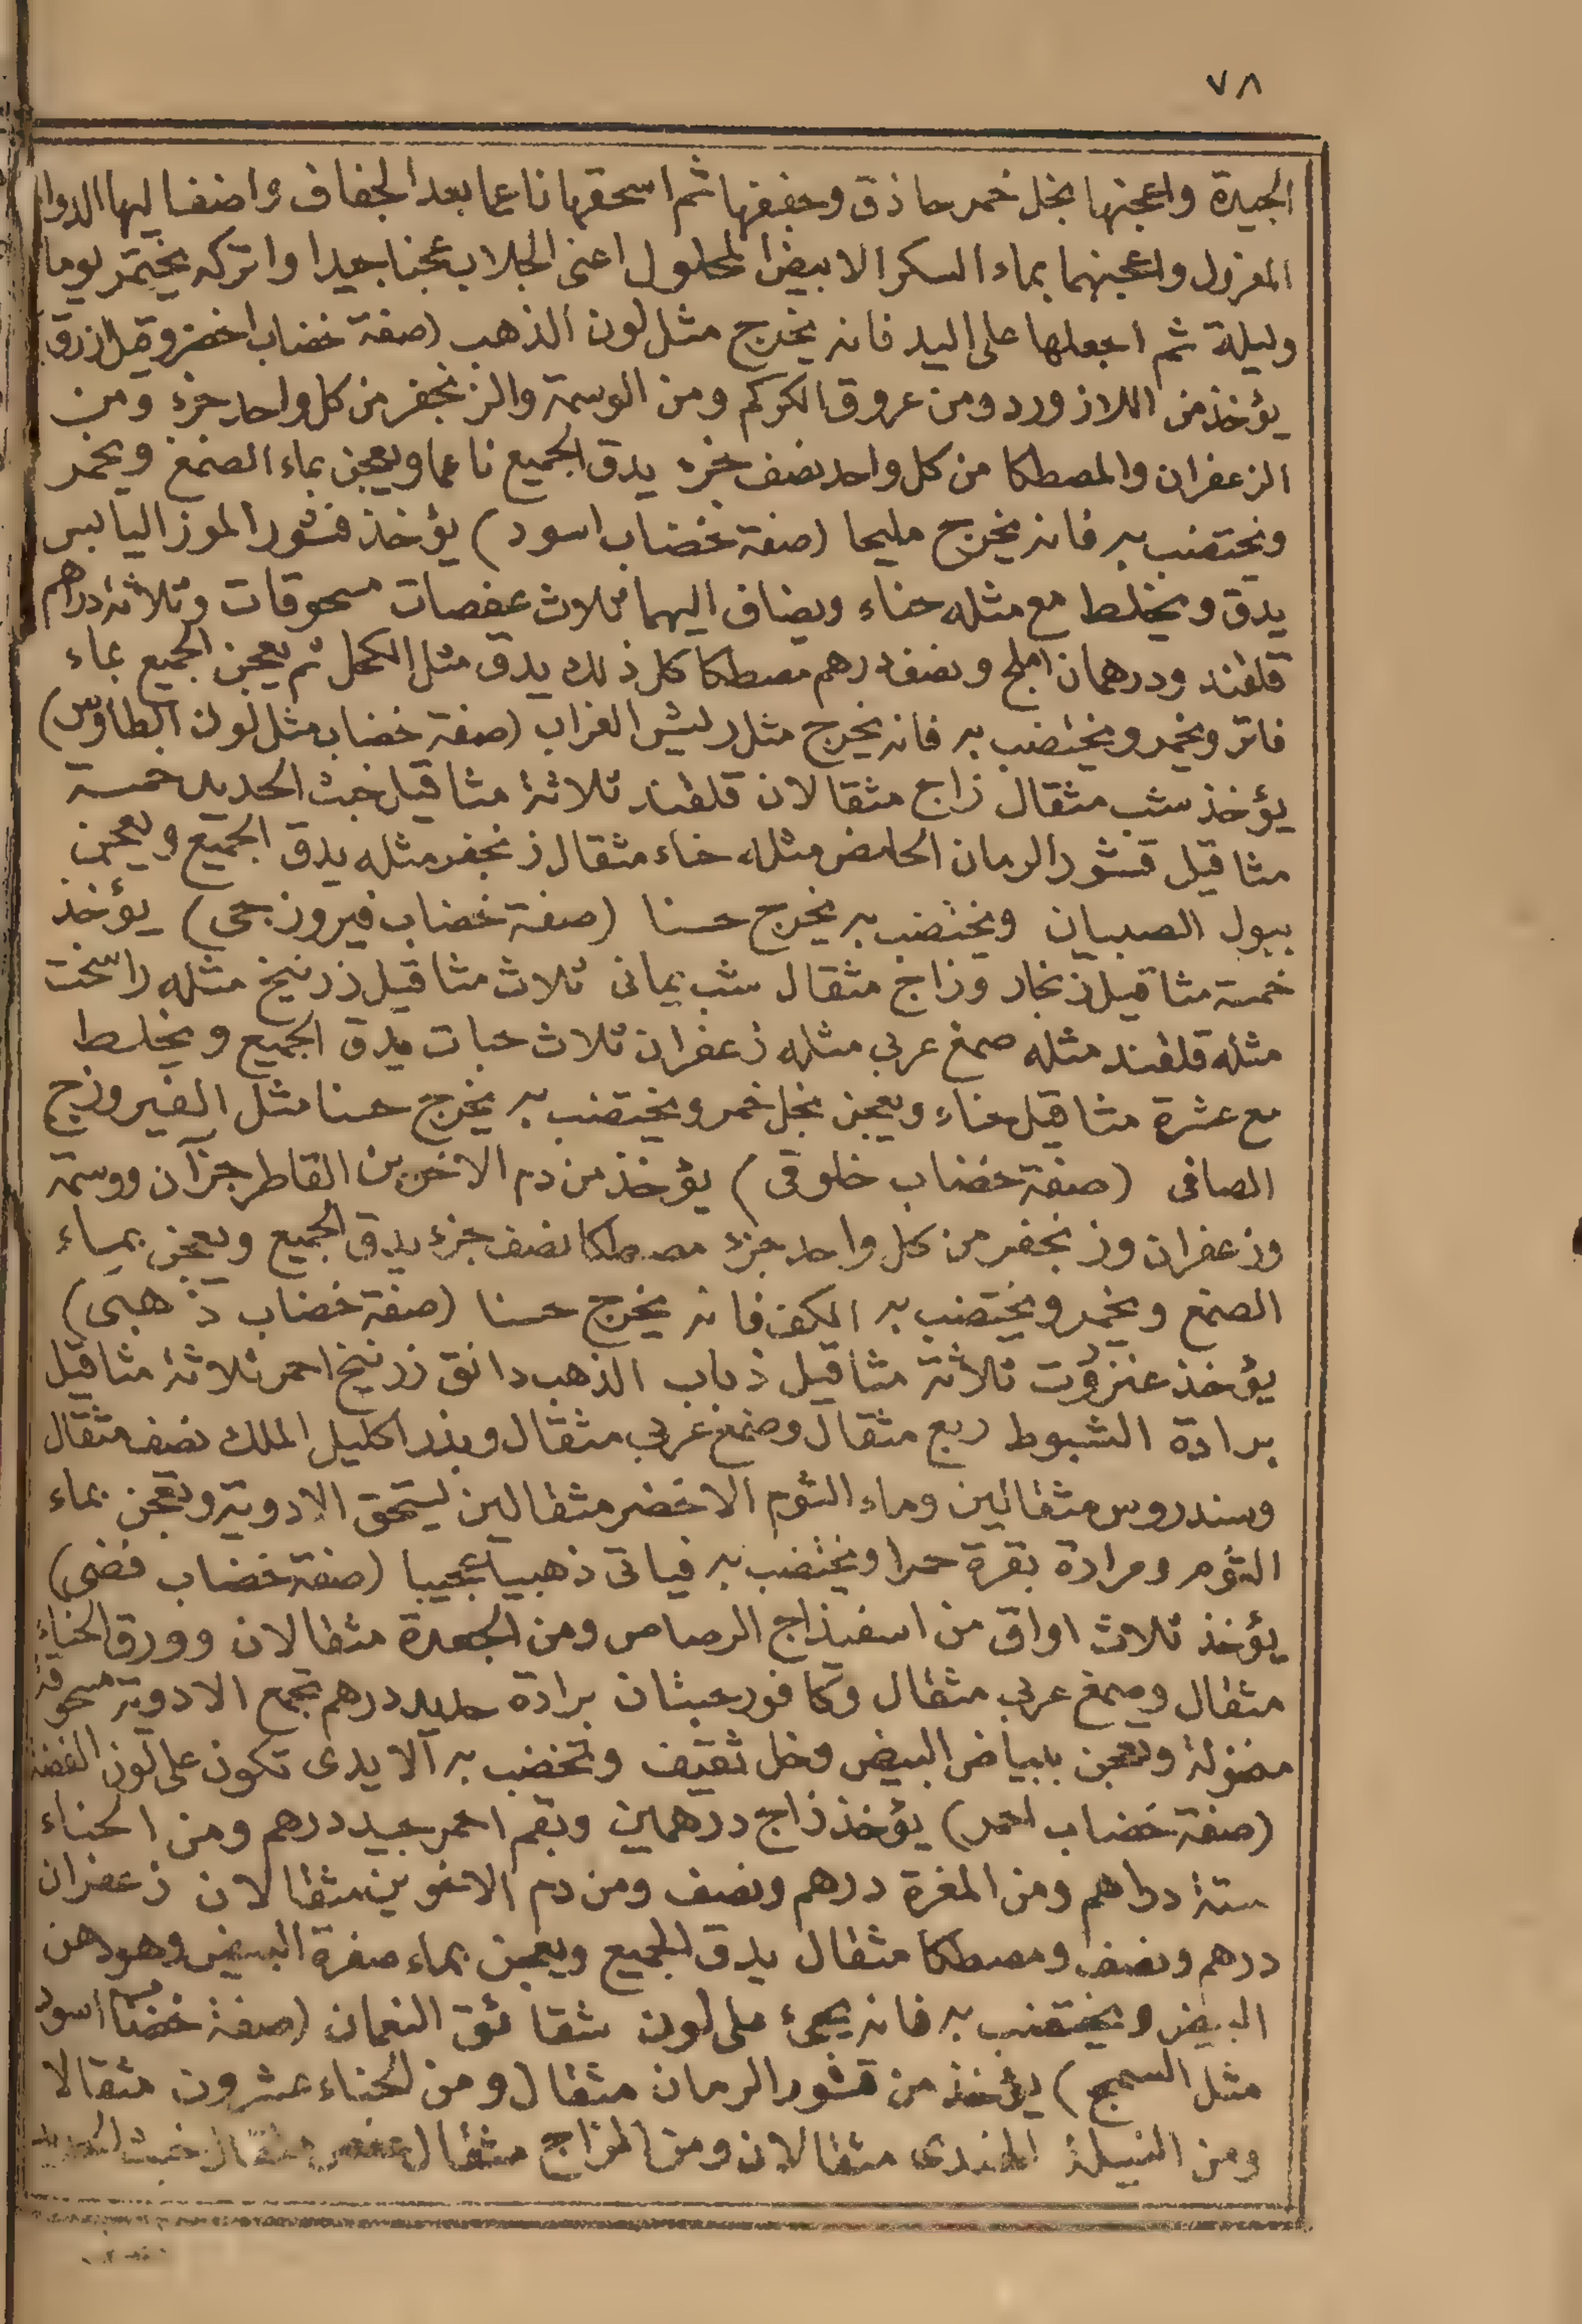 ٧٨
الجيدة واعجنها بخل خمر حاذق وجففها ثم اسحقها ناعما بعد الجفاف واضف اليها الدوا
المعزول واعجنهما بماء السكر الابيض المحلول اعنى الجلاب عجنا جيدا واتركه يختمر يوما
وليلة ثم اجعلها على اليد فانه يخرج مثل لون الذهب (صفة خضاب اخضر وقيل ازرق
يؤخذ من اللازورد ومن عروق الكركم ومن الوسمة والزنجفر من كل واحد جزء ومن
الزعفران والمصطكا من كل واحد نصف جزء يدق الجميع ناعما ويعجن بماء الصمغ ويخمر
ويختضب به فانه يخرج مليحا (صفة خضاب اسود) يؤخذ قشور الموز اليابس
يدق ويخلط مع مثله حناء ويضاف اليهما ثلاث عفصات مسحوقات وثلاثة دراهم
قلقند ودرهمان املج ونصف درهم مصطكا كل ذلك يدق مثل الكحل ثم يعجن الجميع بماء
فاتر ويخمر ويختضب به فانه يخرج مثل ريش الغراب (صفة خضاب مثل لون الطاوس)
يؤخذ شب مثقال زاج مثقالان قلقند ثلاثة مثاقيل خبث الحديد خمسة
مثاقيل قشور الرمان الحامض مثله حناء مثقال زنجفر مثله يدق الجميع ويعجن
ببول الصبيان ويختضب به يخرج حسنا (صفة خضاب فيروزجى) يؤخذ
خمسة مثاقيل زنجار وزاج مثقال شب يمانى ثلاث مثاقيل زرنيخ مثله راسخت
مثله قلقند مثله صمغ عربى مثله زعفران ثلاث حبات يدق الجميع ويخلط
مع عشرة مثاقيل حناء ويعجن بخل خمر ويختضب به يخرج حسنا مثل الفيروزج
الصافى (صفة خضاب خلوقى) يؤخذ من دم الاخوين القاطر جزآن ووسمة
وزعفران وزنجفر من كل واحد جزء مصطكا نصف جزء يدق الجميع ويعجن بماء
الصمغ ويخمر ويختضب به الكف فانه يخرج حسنا (صفة خضاب ذهبى)
يؤخذ عنزروت ثلاثة مثاقيل ذباب الذهب دانق زرنيخ احمر ثلاثة مثاقيل
برادة الشبوط ربع مثقال وصمغ عربى مثقال وبذر اكليل الملك نصف مثقال
وسندروس مثقالين وماء الثوم الاخضر مثقالين يسحق الادوية وتعجن بماء
الثوم ومرادة بقرة حمرا ويختضب به فياتى ذهبيا عجيبا (صفة خضاب فضى)
يؤخذ ثلاث اواق من اسفيذاج الرصاص ومن الجعدة مثقالان وورق الحناء
مثقال وصمغ عربى مثقال وكافور حبتان برادة حديد درهم تجمع الادوية مسحوقة
منخولة وتعجن ببياض البيض وخل ثقيف وتخضب به الايدى تكون على لون الفضة
(صفة خضاب احمر) يؤخذ زاج درهمين وبقم احمر جيد درهم ومن الحناء
ستة دراهم ومن المغرة درهم ونصف ومن دم الاخوين مثقالان زعفران
درهم ونصف ومصطكا مثقال يدق الجميع ويعجن بماء صفرة البيض وهو دهن
البيض ويختضب به فانه يجىء على لون شقائق النعمان (صفة خضاب اسود
مثل السبج) يؤخذ من قشور الرمان مثقال ومن الحناء عشرون مثقالا
ومن النيلة الهندى مثقالان ومن الزاج مثقال عفص مثقال خبث الحديد